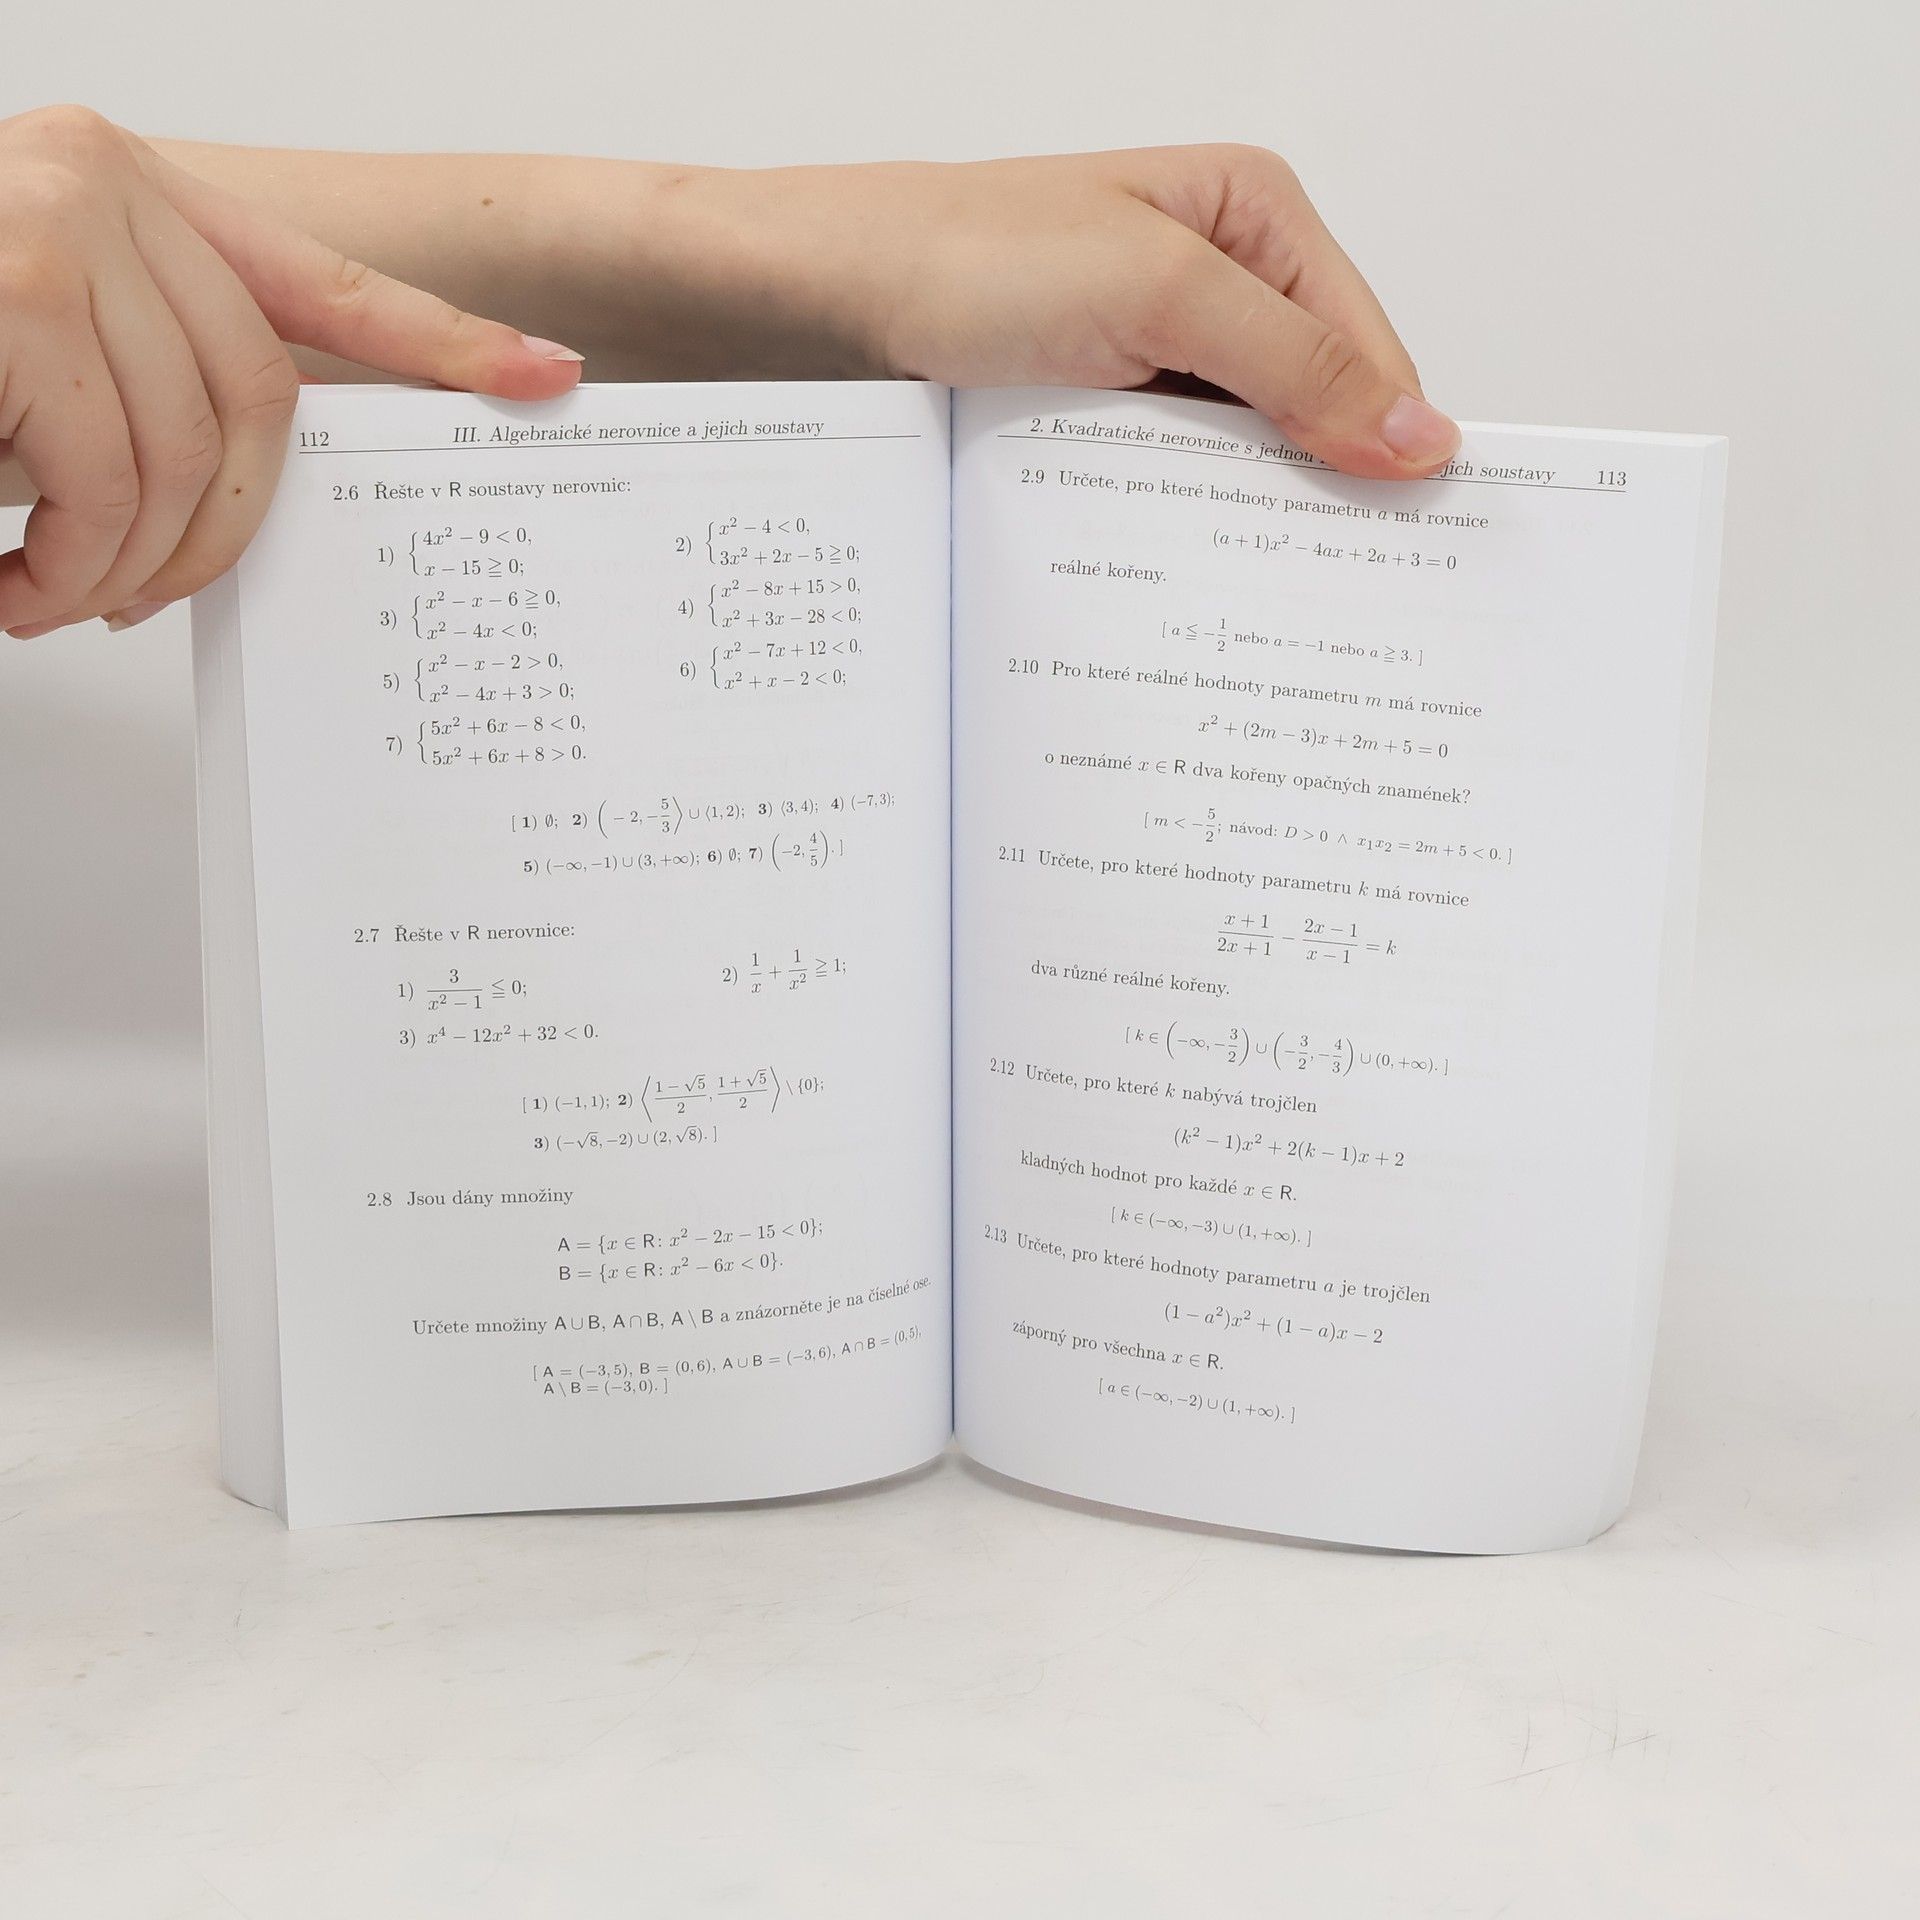 112 III. Algebraické nerovnice a jejich soustavy
2.6 Řešte v R soustavy nerovnic:
1) { 4x² − 9 < 0,
x − 15 ≧ 0;
2) { x² − 4 < 0,
3x² + 2x − 5 ≧ 0;
3) { x² − x − 6 ≧ 0,
x² − 4x < 0;
4) { x² − 8x + 15 > 0,
x² + 3x − 28 < 0;
5) { x² − x − 2 > 0,
x² − 4x + 3 > 0;
6) { x² − 7x + 12 < 0,
x² + x − 2 < 0;
7) { 5x² + 6x − 8 < 0,
5x² + 6x + 8 > 0.
[ 1) ∅; 2) (−2, −5/3⟩ ∪ ⟨1, 2); 3) ⟨3, 4); 4) (−7, 3);
5) (−∞, −1) ∪ (3, +∞); 6) ∅; 7) (−2, 4/5). ]
2.7 Řešte v R nerovnice:
1) 3/(x² − 1) ≦ 0;
2) 1/x + 1/x² ≧ 1;
3) x⁴ − 12x² + 32 < 0.
[ 1) (−1, 1); 2) ⟨(1 − √5)/2, (1 + √5)/2⟩ \ {0};
3) (−√8, −2) ∪ (2, √8). ]
2.8 Jsou dány množiny
A = {x ∈ R: x² − 2x − 15 < 0};
B = {x ∈ R: x² − 6x < 0}.
Určete množiny A ∪ B, A ∩ B, A \ B a znázorněte je na číselné ose.
[ A = (−3, 5), B = (0, 6), A ∪ B = (−3, 6), A ∩ B = (0, 5),
A \ B = (−3, 0). ]
2. Kvadratické nerovnice s jednou jich soustavy 113
2.9 Určete, pro které hodnoty parametru a má rovnice
(a + 1)x² − 4ax + 2a + 3 = 0
reálné kořeny.
[ a ≦ −1/2 nebo a = −1 nebo a ≧ 3. ]
2.10 Pro které reálné hodnoty parametru m má rovnice
x² + (2m − 3)x + 2m + 5 = 0
o neznámé x ∈ R dva kořeny opačných znamének?
[ m < −5/2; návod: D > 0 ∧ x₁x₂ = 2m + 5 < 0. ]
2.11 Určete, pro které hodnoty parametru k má rovnice
(x + 1)/(2x + 1) − (2x − 1)/(x − 1) = k
dva různé reálné kořeny.
[ k ∈ (−∞, −3/2) ∪ (−3/2, −4/3) ∪ (0, +∞). ]
2.12 Určete, pro které k nabývá trojčlen
(k² − 1)x² + 2(k − 1)x + 2
kladných hodnot pro každé x ∈ R.
[ k ∈ (−∞, −3) ∪ (1, +∞). ]
2.13 Určete, pro které hodnoty parametru a je trojčlen
(1 − a²)x² + (1 − a)x − 2
záporný pro všechna x ∈ R.
[ a ∈ (−∞, −2) ∪ (1, +∞). ]